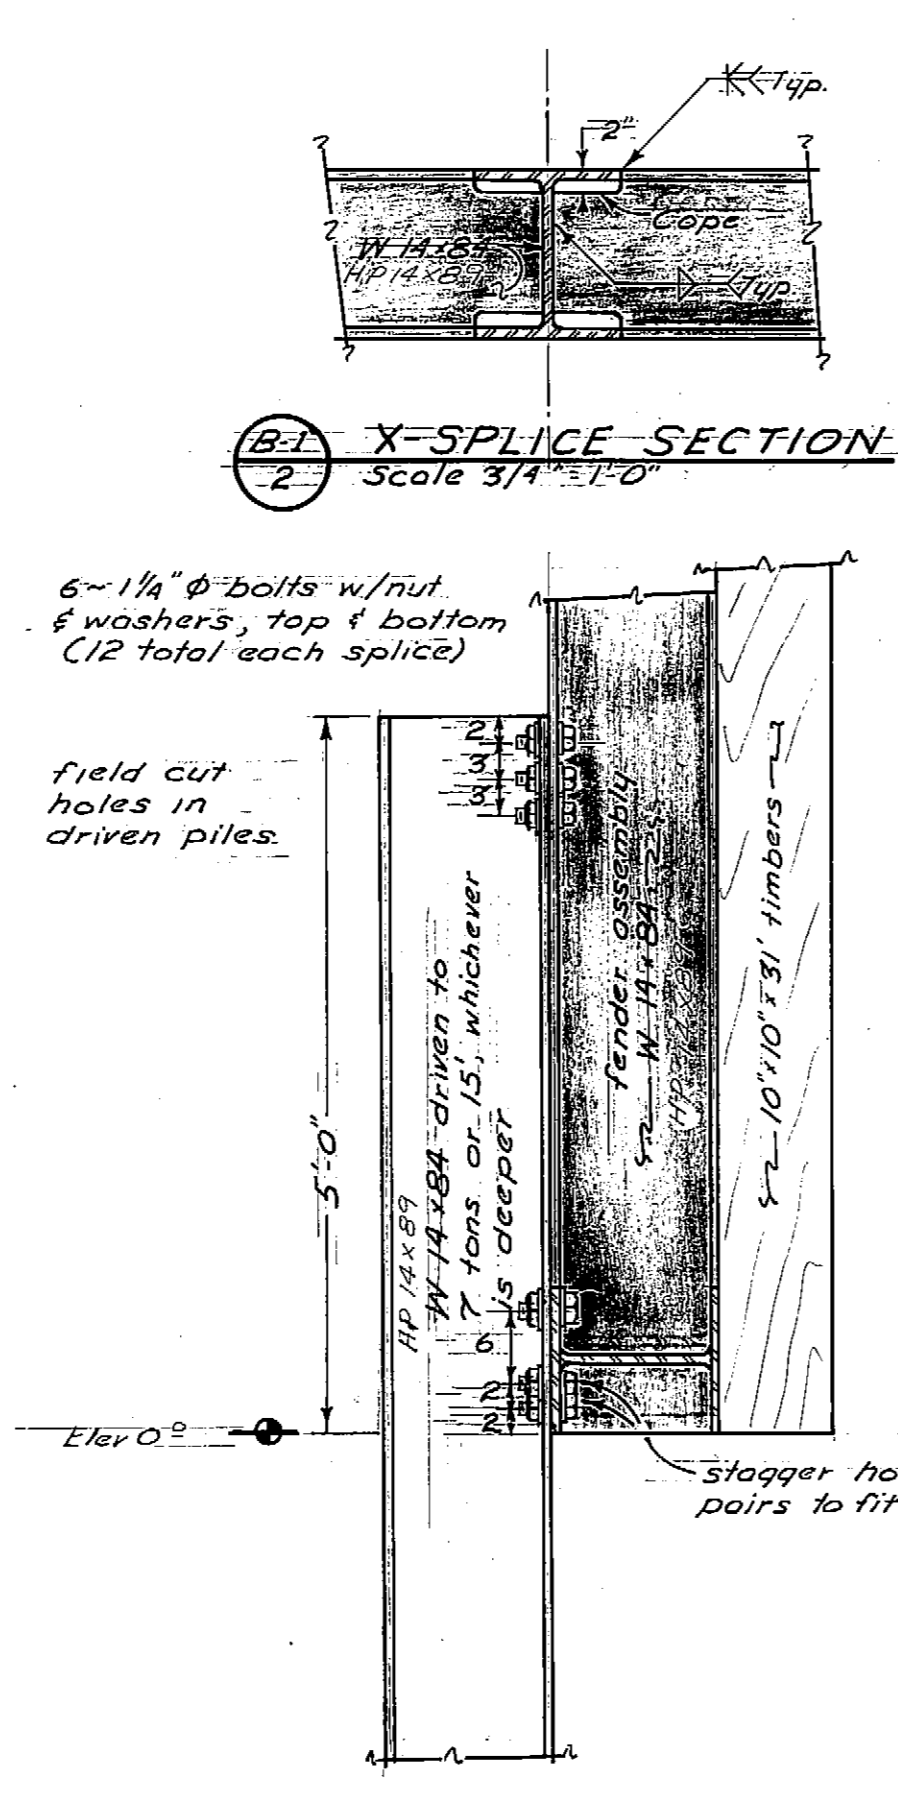 Typ.
2"
Cope
W 14x84
HP14x89
Typ
B-1
2
X-SPLICE SECTION
Scale 3/4" = 1'-0"
6~ 1¼" Φ bolts w/nut
& washers, top & bottom
(12 total each splice)
field cut
holes in
driven piles
2
3
3
5'-0"
HP 14x89
W 14x84 driven to
7 tons or 15', whichever
is deeper
fender assembly
W 14x84
10"x10"x31' timbers
6
2
2
Elev 0.0
stagger ho
pairs to fit